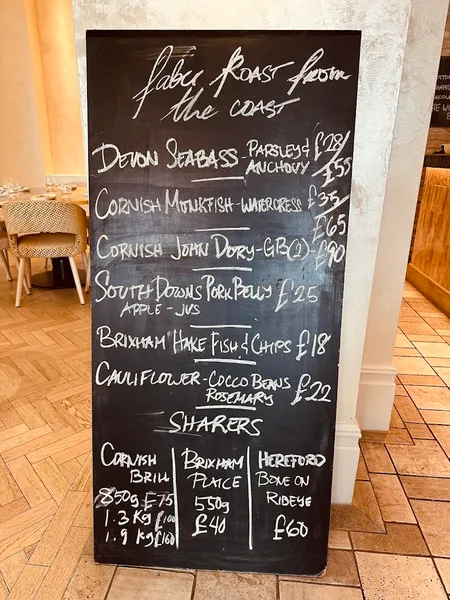 fabu Roast from
the COAST
DEVON SEABASS - PARSLEY & £28/
ANCHOVY £55
CORNISH MONKFISH - WATERCRESS £35/
£65
CORNISH JOHN DORY - GB(1) - £90
SOUTH DOWNS PORK BELLY £25
APPLE - JUS
BRIXHAM HAKE FISH & CHIPS £18
CAULIFLOWER - COCCO BEANS
ROSEMARY £22
SHARERS
CORNISH
BRILL
850g £75
1.3 Kg £100
1.9 Kg £160
BRIXHAM
PLAICE
550g
£40
HEREFORD
BONE ON
RIBEYE
£60